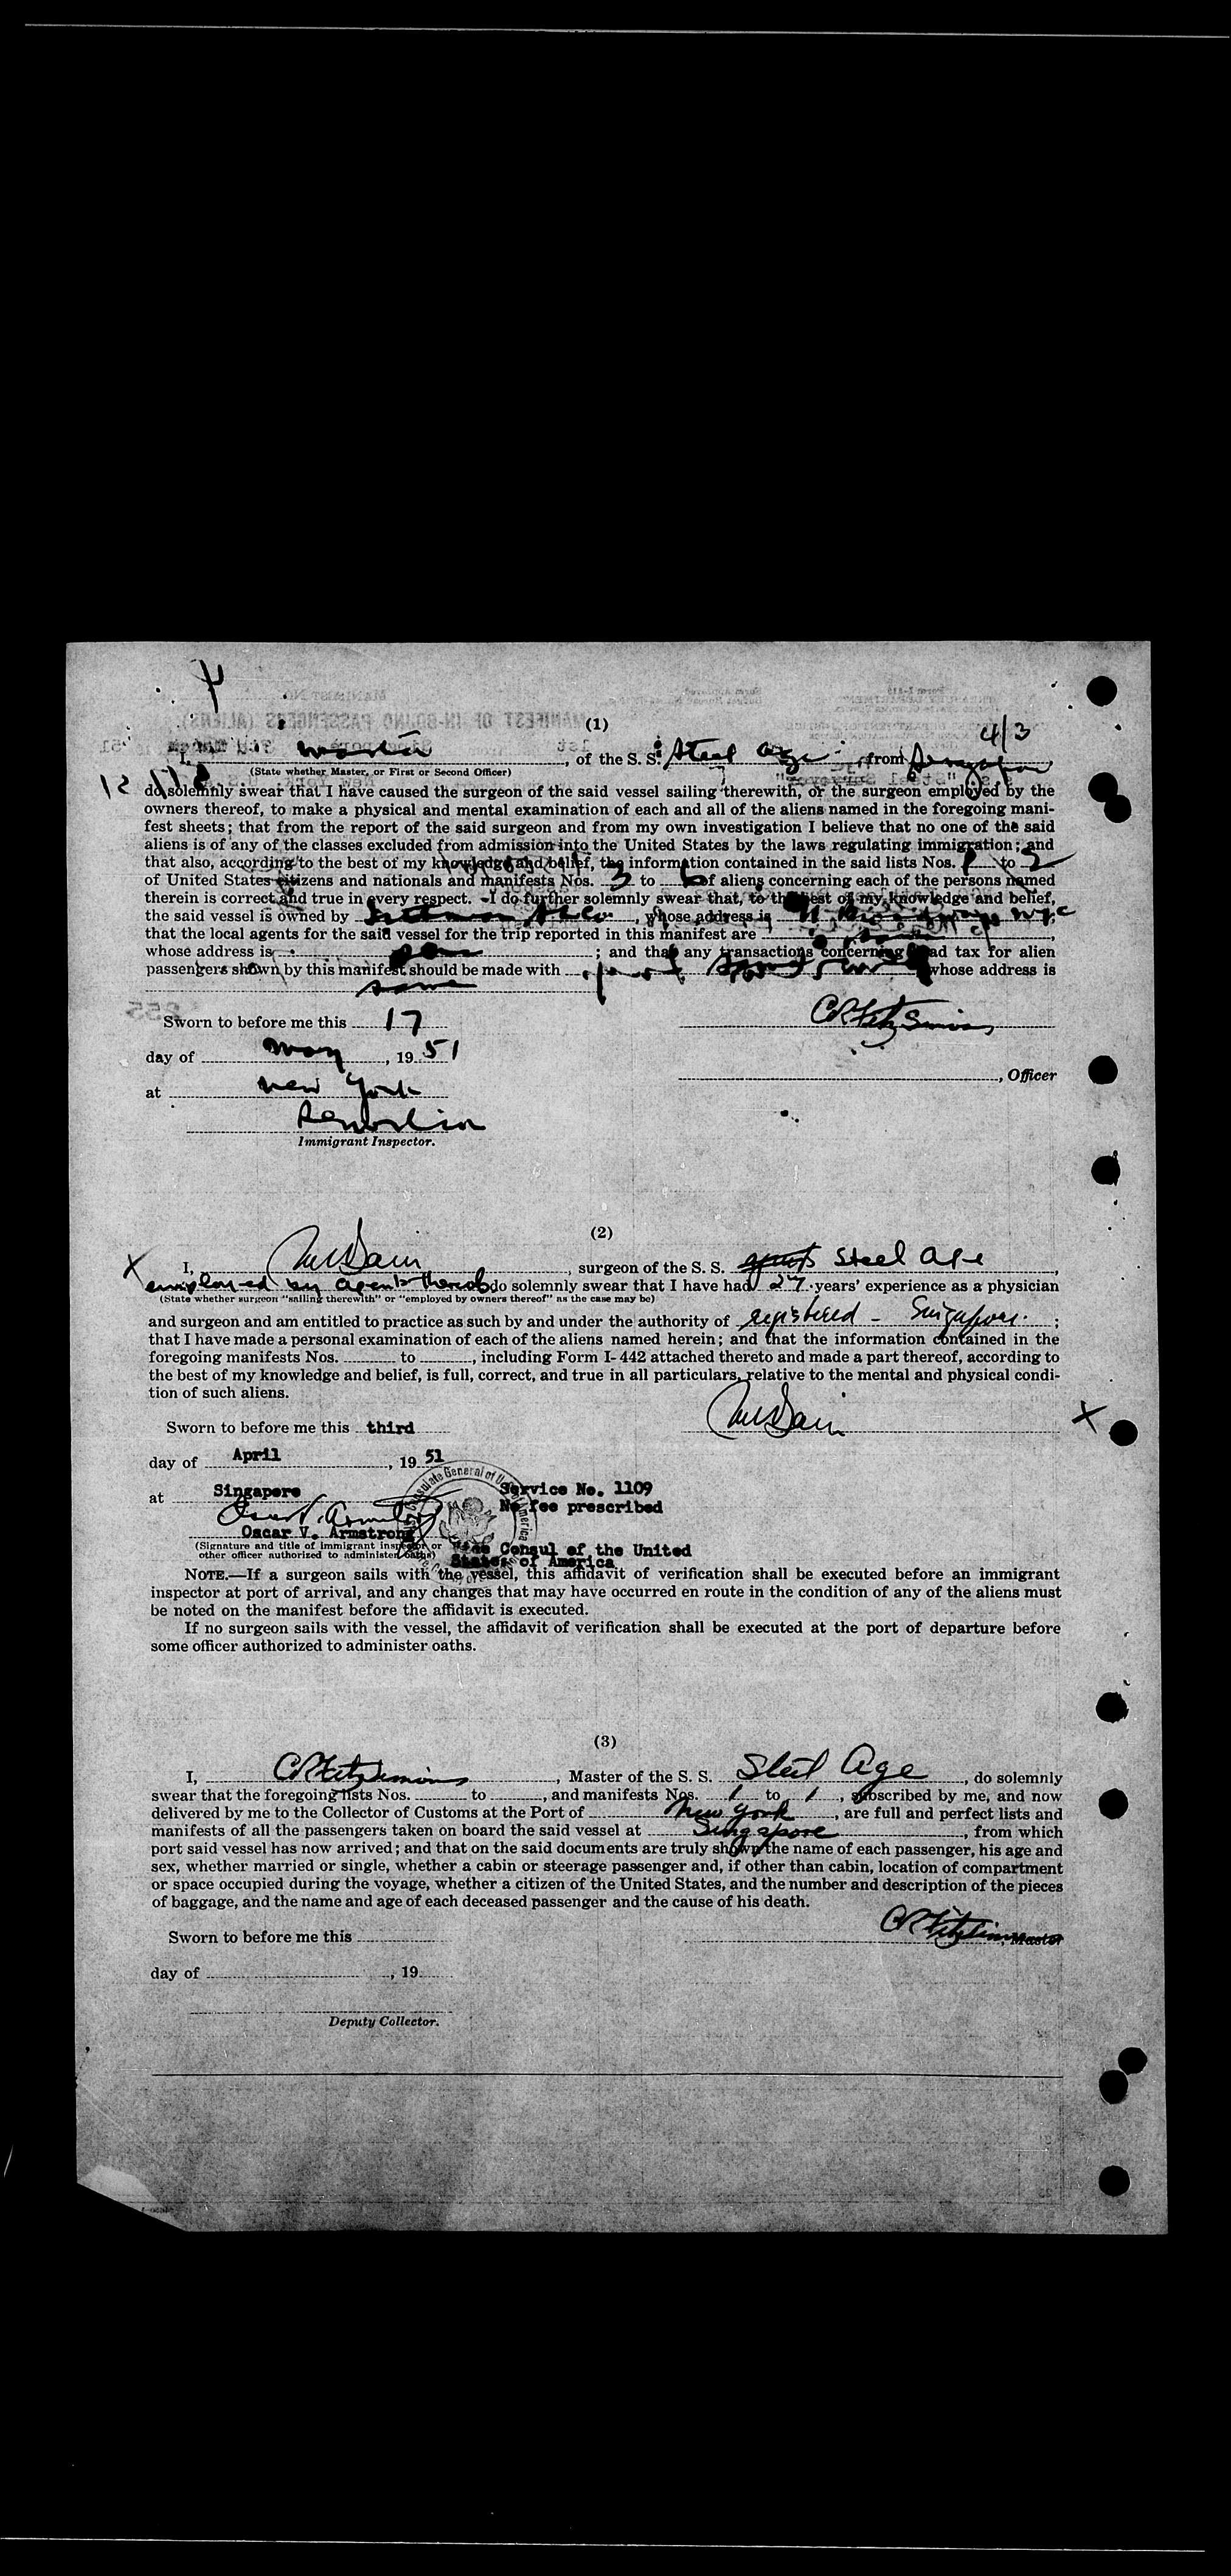 (1)
4/3
I, Master, of the S. S. Steel Age, from Singapore
(State whether Master, or First or Second Officer)
do solemnly swear that I have caused the surgeon of the said vessel sailing therewith, or the surgeon employed by the
owners thereof, to make a physical and mental examination of each and all of the aliens named in the foregoing mani-
fest sheets; that from the report of the said surgeon and from my own investigation I believe that no one of the said
aliens is of any of the classes excluded from admission into the United States by the laws regulating immigration; and
that also, according to the best of my knowledge and belief, the information contained in the said lists Nos. 1 to 2
of United States citizens and nationals and manifests Nos. 3 to 6 of aliens concerning each of the persons named
therein is correct and true in every respect. I do further solemnly swear that, to the best of my knowledge and belief,
the said vessel is owned by , whose address is 11 Broadway NYC
that the local agents for the said vessel for the trip reported in this manifest are same,
whose address is same; and that any transactions concerning head tax for alien
passengers shown by this manifest should be made with whose address is
same
Sworn to before me this 17
CR FitzSimons
day of May, 19 51
, Officer
at New York
Immigrant Inspector.
(2)
I, , surgeon of the S. S. Steel Age,
employed by agents thereof do solemnly swear that I have had 27 years' experience as a physician
(State whether surgeon "sailing therewith" or "employed by owners thereof" as the case may be)
and surgeon and am entitled to practice as such by and under the authority of registered - Singapore. ;
that I have made a personal examination of each of the aliens named herein; and that the information contained in the
foregoing manifests Nos. to , including Form I-442 attached thereto and made a part thereof, according to
the best of my knowledge and belief, is full, correct, and true in all particulars, relative to the mental and physical condi-
tion of such aliens.
Sworn to before me this third
day of April, 19 51
at Singapore
Service No. 1109
No fee prescribed
Oscar V. Armstrong
Oscar V. Armstrong
(Signature and title of immigrant inspector or
other officer authorized to administer oaths)
Vice Consul of the United
States of America
NOTE.—If a surgeon sails with the vessel, this affidavit of verification shall be executed before an immigrant
inspector at port of arrival, and any changes that may have occurred en route in the condition of any of the aliens must
be noted on the manifest before the affidavit is executed.
If no surgeon sails with the vessel, the affidavit of verification shall be executed at the port of departure before
some officer authorized to administer oaths.
(3)
I, CR FitzSimons, Master of the S. S. Steel Age, do solemnly
swear that the foregoing lists Nos. to , and manifests Nos. 1 to 1, subscribed by me, and now
delivered by me to the Collector of Customs at the Port of New York, are full and perfect lists and
manifests of all the passengers taken on board the said vessel at Singapore, from which
port said vessel has now arrived; and that on the said documents are truly shown the name of each passenger, his age and
sex, whether married or single, whether a cabin or steerage passenger and, if other than cabin, location of compartment
or space occupied during the voyage, whether a citizen of the United States, and the number and description of the pieces
of baggage, and the name and age of each deceased passenger and the cause of his death.
CR FitzSimons, Master
Sworn to before me this
day of , 19
Deputy Collector.